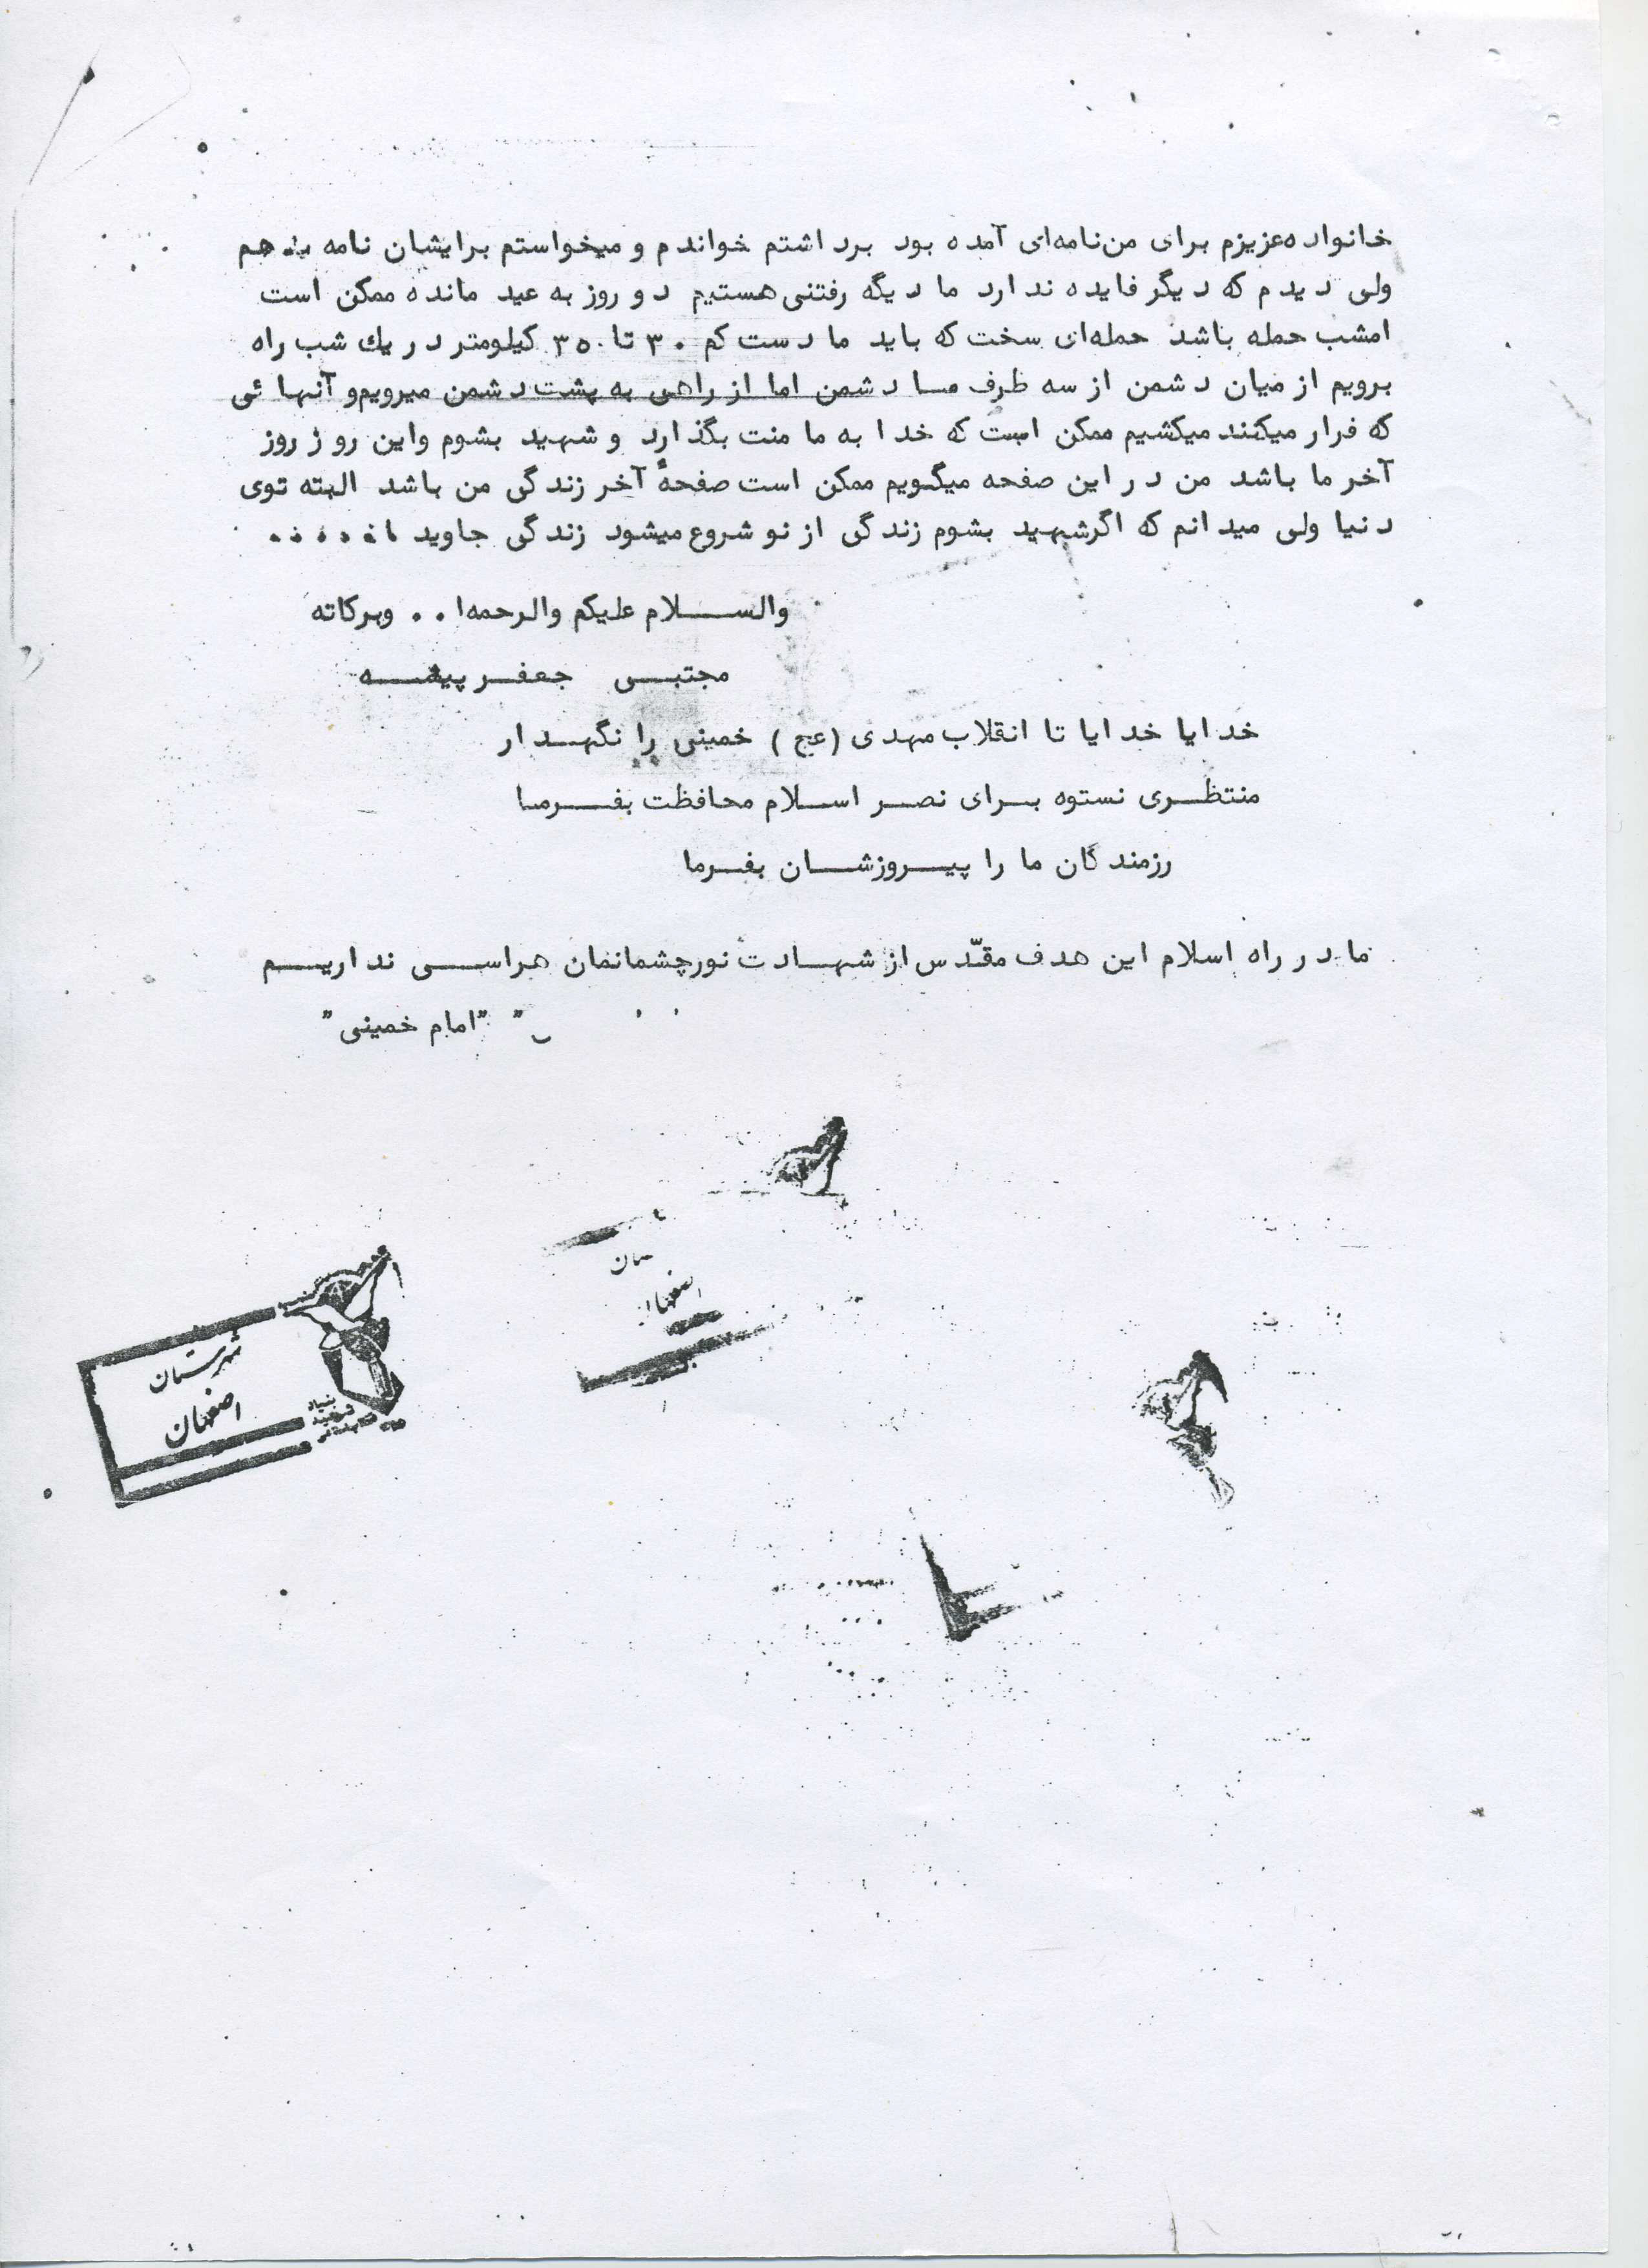 خانواده عزیزم برای من نامه‌ای آمده بود برداشتم خواندم و میخواستم برایشان نامه بدهم
ولی دیدم که دیگر فایده ندارد ما دیگه رفتنی هستیم دو روز به عید مانده ممکن است
امشب حمله باشد حمله‌ای سخت که باید ما دست کم ۳۰ تا ۳۵ کیلومتر در یك شب راه
برویم از میان دشمن از سه طرف مـا دشمن اما از راهی به پشت دشمن میرویم و آنهائی
که فرار میکنند میکشیم ممکن است که خدا به ما منت بگذارد و شهید بشوم واین روز روز
آخر ما باشد من در این صفحه میگویم ممکن است صفحهٔ آخر زندگی من باشد البته توی
دنیا ولی میدانم که اگر شهید بشوم زندگی از نو شروع میشود زندگی جاوید
والســـلام علیکم والرحمه‌ا.. وبرکاته
مجتبــی جعفــر پیشــه
خدایا خدایا تا انقلاب مهدی (عج) خمینی را نگهــدار
منتظــری نستوه بــرای نصــر اســلام محافظت بفــرمـا
رزمندگان ما را پیــروزشــان بفــرما
ما در راه اسلام این هدف مقدّس از شهــادت نورچشمانمان هراســی نداریــم
"امام خمینی"
شهرستان
اصفهان
بنیاد
شهید
ستان
اصفهان